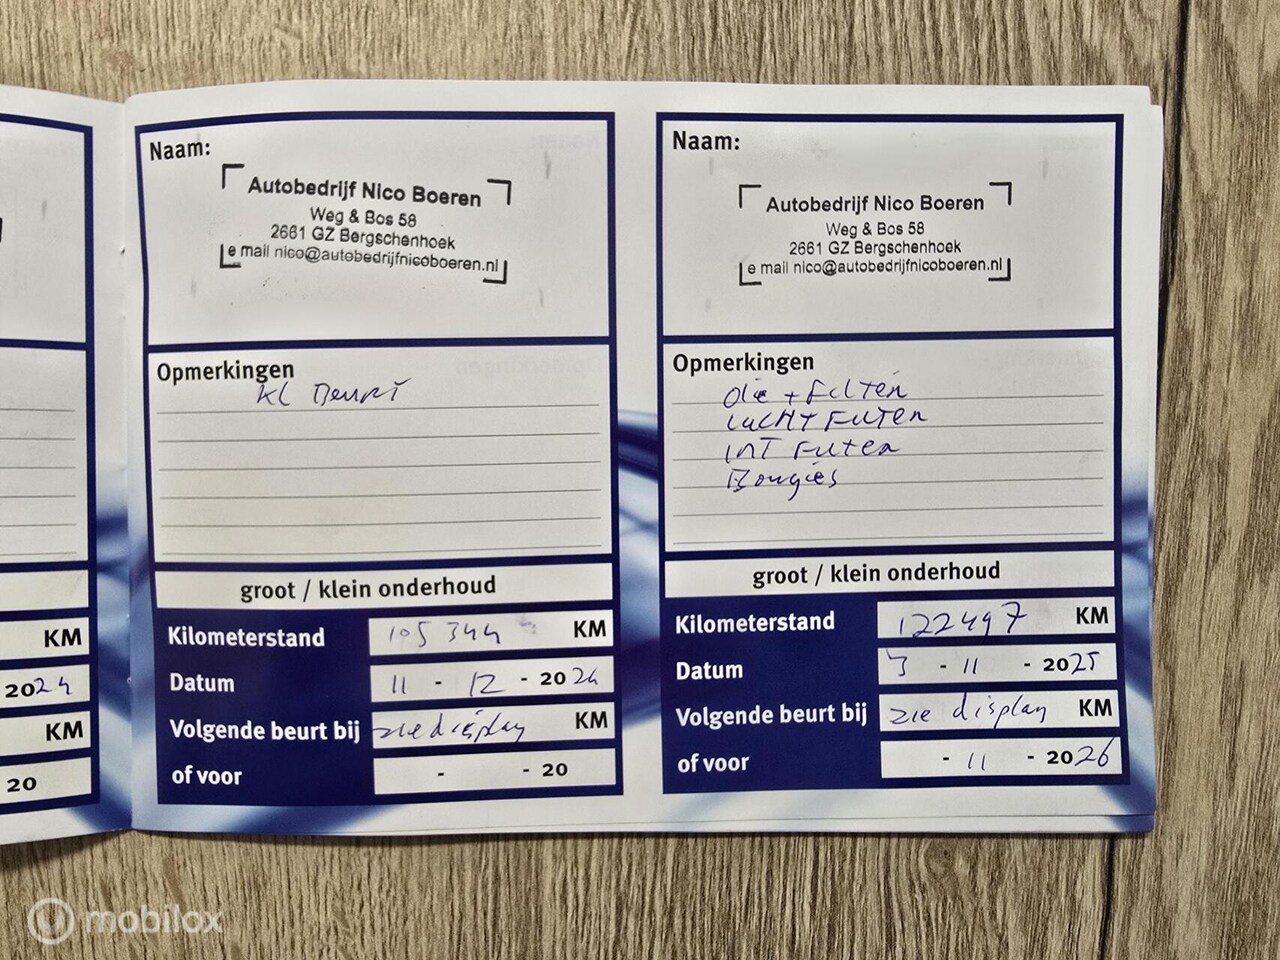 KM
2024
KM
20
Naam:
Autobedrijf Nico Boeren
Weg & Bos 58
2661 GZ Bergschenhoek
e mail nico@autobedrijfnicoboeren.nl
Opmerkingen
KL Beurt
groot / klein onderhoud
Kilometerstand 105 344 KM
Datum 11 - 12 - 2024
Volgende beurt bij zie display KM
of voor - - 20
Naam:
Autobedrijf Nico Boeren
Weg & Bos 58
2661 GZ Bergschenhoek
e mail nico@autobedrijfnicoboeren.nl
Opmerkingen
Olie + Filter
Lucht Filter
Int Filter
Bougies
groot / klein onderhoud
Kilometerstand 122497 KM
Datum 3 - 11 - 2025
Volgende beurt bij zie display KM
of voor - 11 - 2026
mobilox